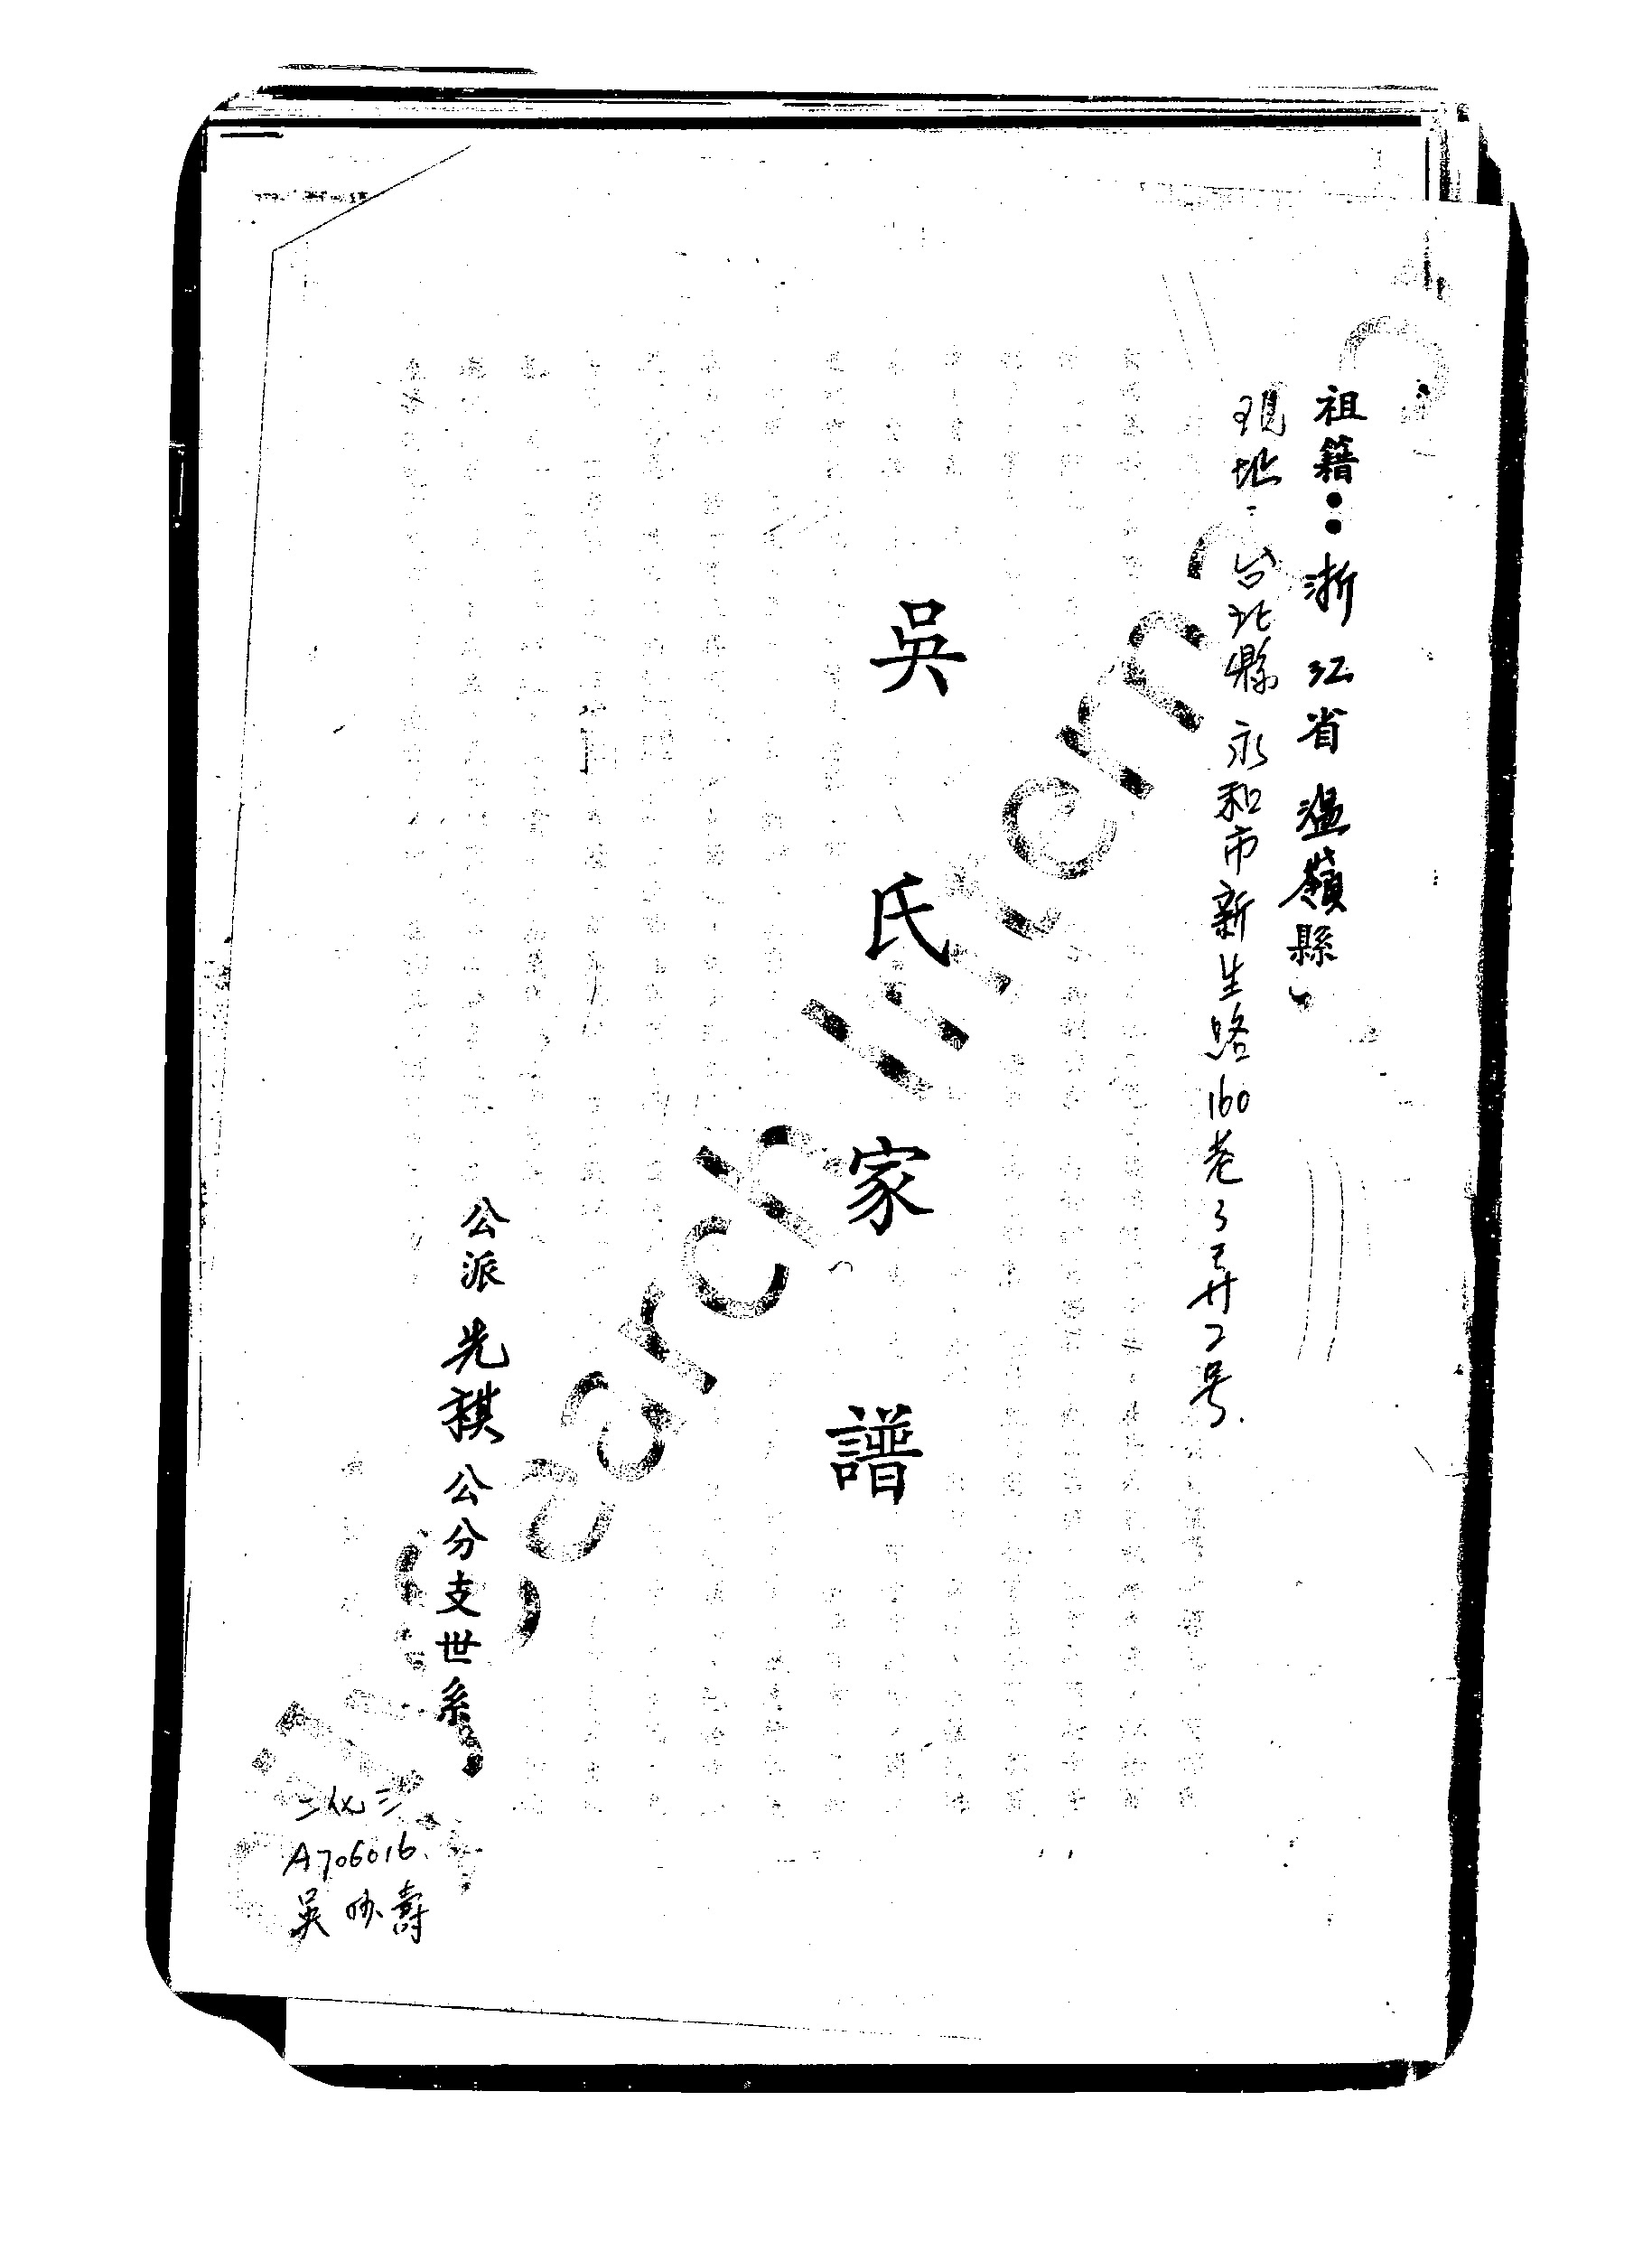 祖籍：浙江省溫嶺縣
現址：台北縣永和市新生路160巷3弄2号
吳氏家譜
公派先祺公分支世系
二伙三
A706016
吳 壽